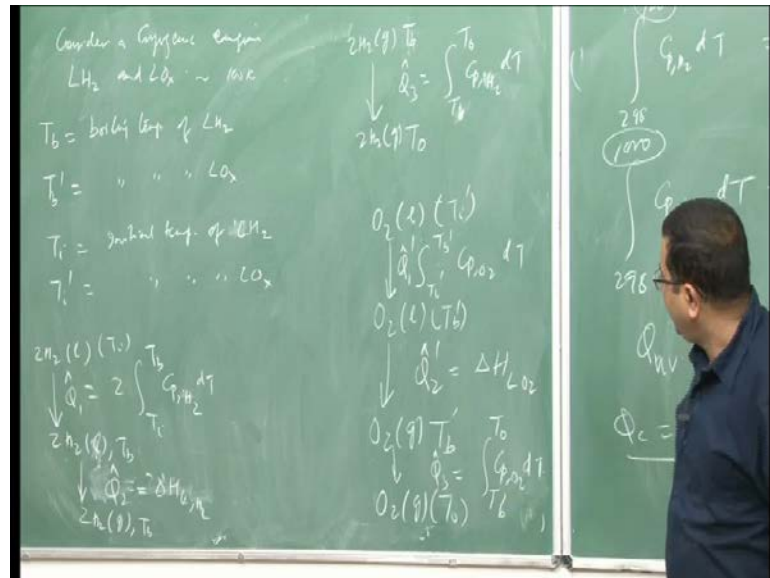 Consider a Cryogenic engine
LH₂ and LOₓ ~ 100K
T_b = boiling temp of LH₂
T_b' = " " " LOₓ
T_i = initial temp. of LH₂
T_i' = " " " LOₓ
2H₂(l) (T_i)
↓ Q̂₁ = 2 ∫_{T_i}^{T_b} C_{p,H₂} dT
2H₂(l), T_b
↓ Q̂₂ = 2ΔH_{L,H₂}
2H₂(g), T_b
2H₂(g) T_b
↓ Q̂₃ = ∫_{T_b}^{T_0} C_{p,H₂} dT
2H₂(g) T_0
O₂(l) (T_i')
↓ Q̂₁' ∫_{T_i'}^{T_b'} C_{p,O₂} dT
O₂(l) (T_b')
↓ Q̂₂' = ΔH_{LO₂}
O₂(g) T_b'
↓ Q̂₃ = ∫_{T_b'}^{T_0} C_{p,O₂} dT
O₂(g) (T_0)
∫_{298} C_{p,H₂} dT =
∫_{298}^{1000} C_p dT
Q_c =